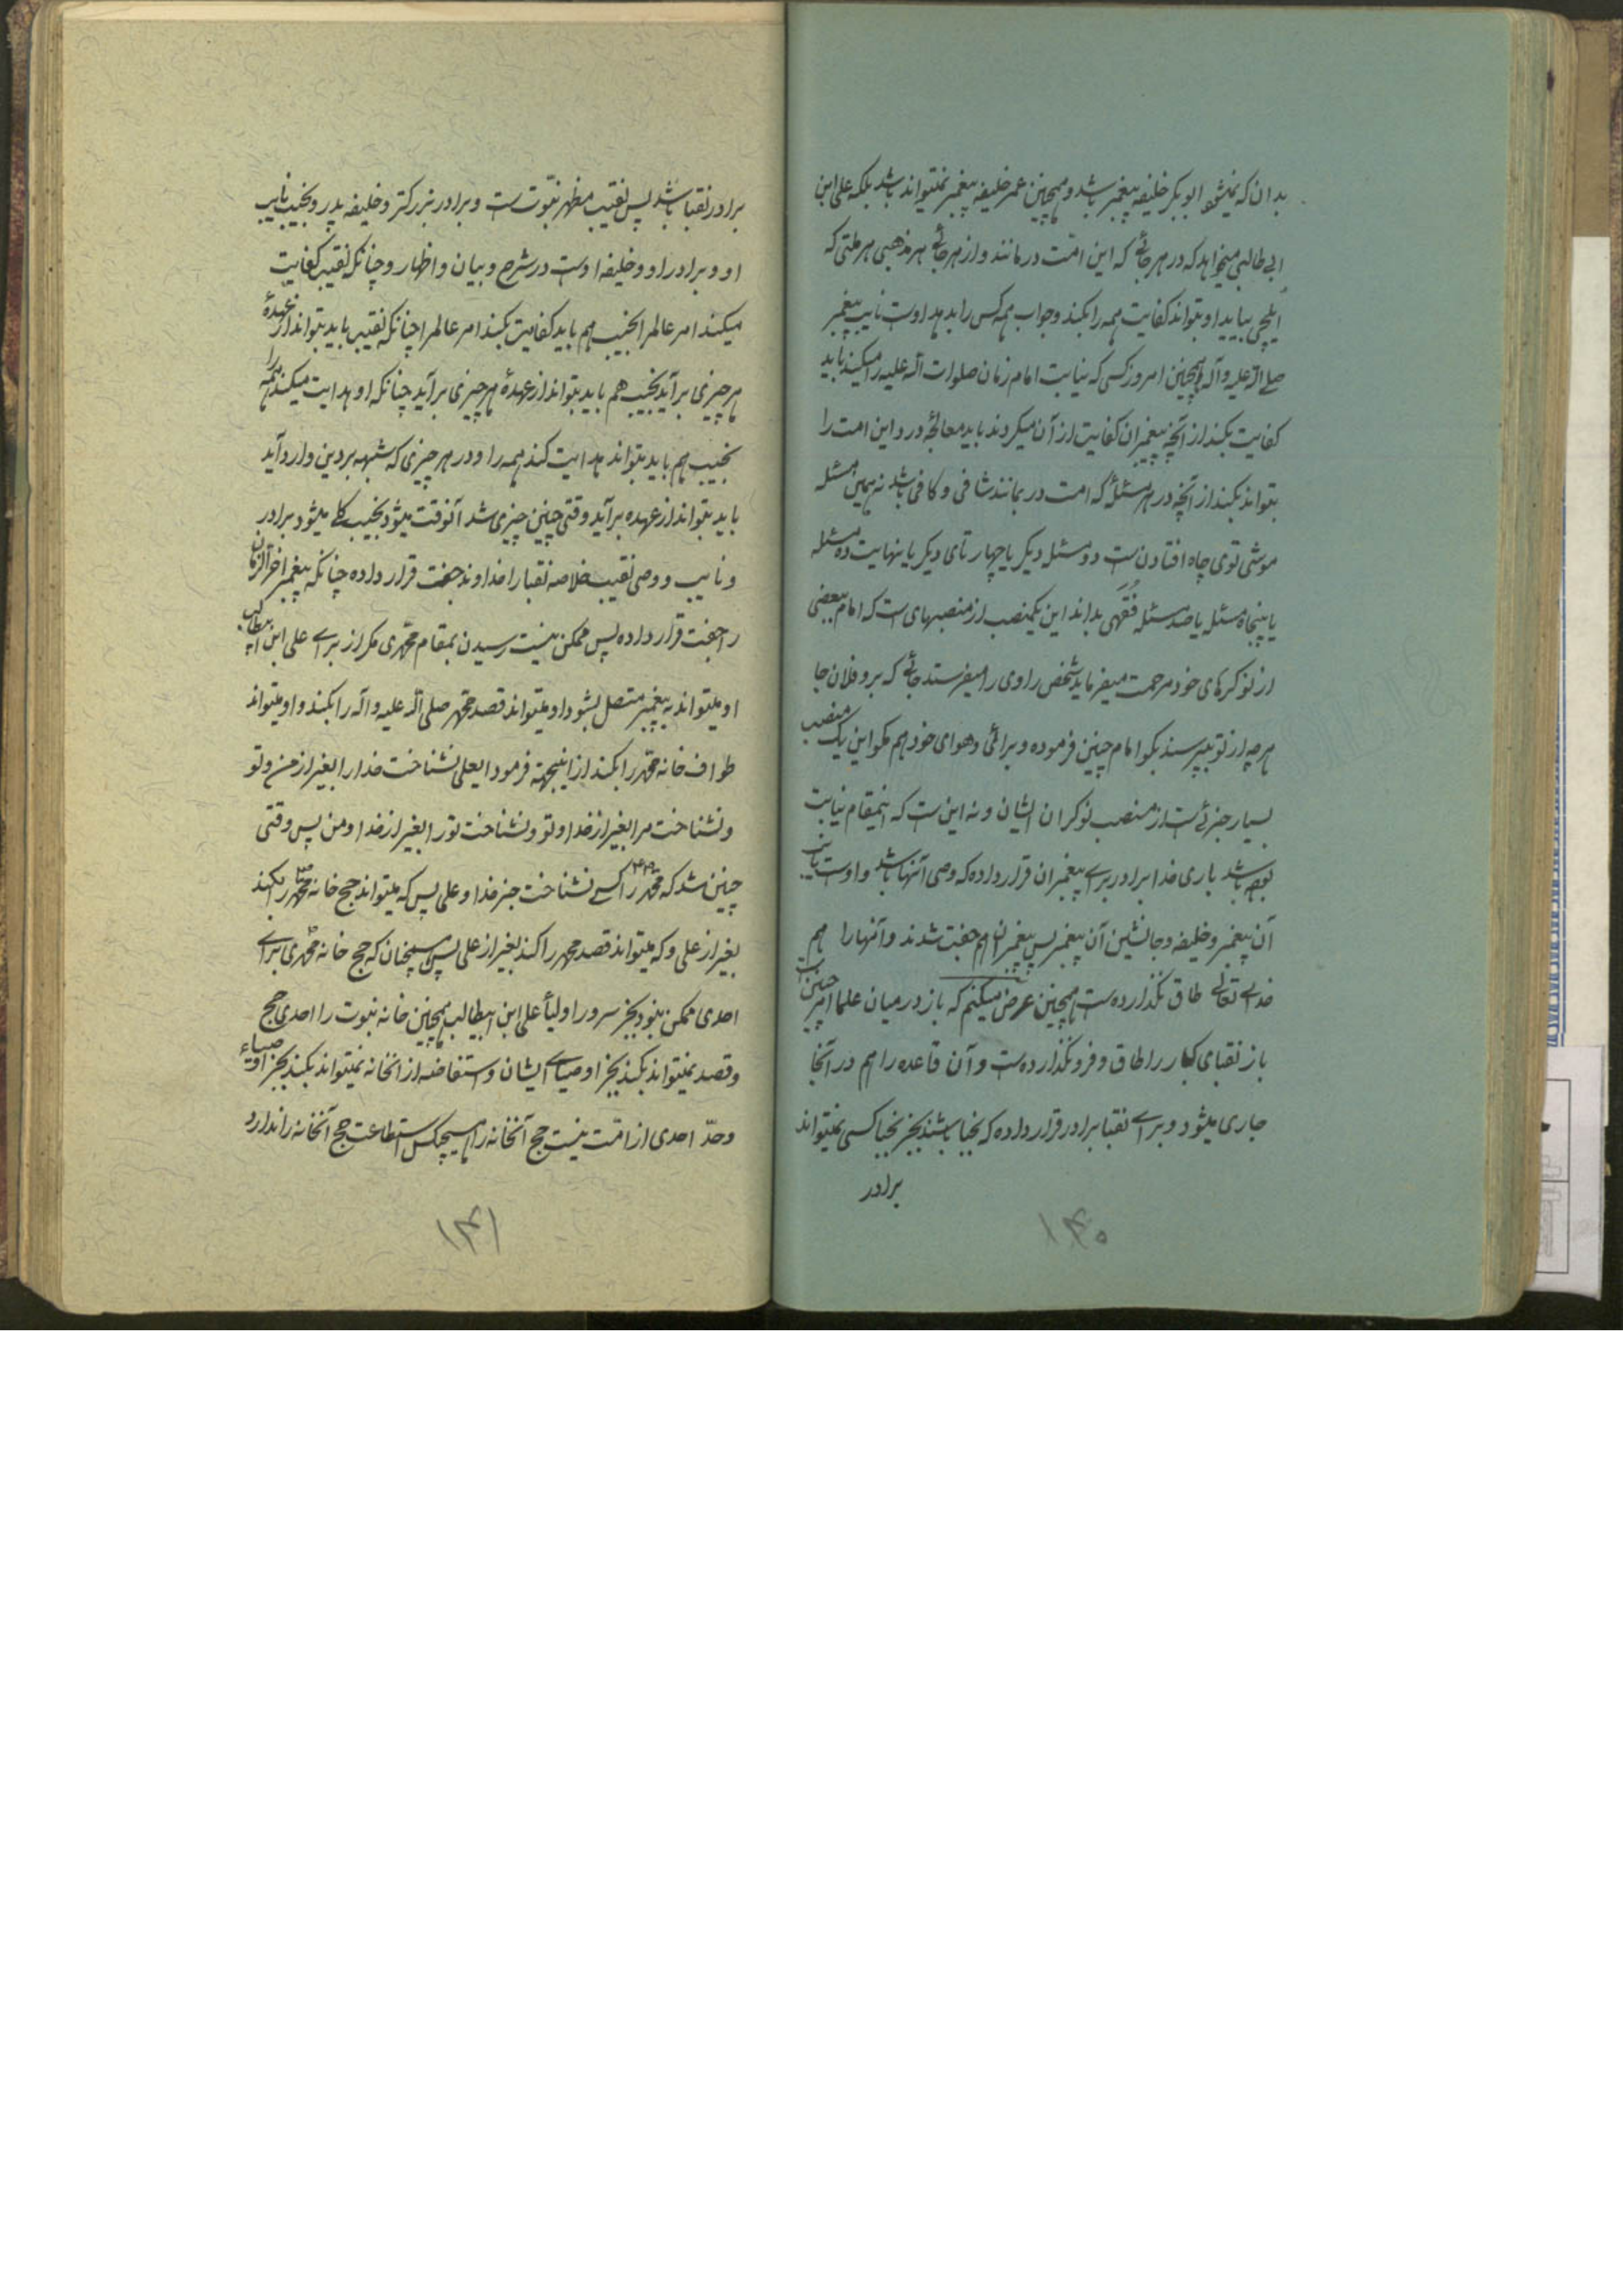 بدان که نمیشود ابوبکر خلیفه پیغمبر باشد و همچنین عمر خلیفه پیغمبر نمیتواند باشد بلکه علی ابن
ابی طالبی میخواهد که در هر جائی که این امّت درمانند و از هر جائی هر مذهبی هر ملتی که
ایلچی بیاید او بتواند کفایت همه را بکند و جواب همه کس را بدهد اوست نایب پیغمبر
صلی الله علیه و آله و همچنین امروز کسی که نیابت امام زمان صلوات الله علیه را میکند باید
کفایت بکند از آنچه پیغمبران کفایت از آن میکردند باید معالجه درد این امت را
بتواند بکند از آنچه در هر مسئلهٔ که امت در بمانند شافی و کافی باشد نه همین مسئله
موشی توی چاه افتادن است دو مسئله دیگر یا چهار تای دیگر یا نهایت ده مسئله
یا پنجاه مسئله یا صد مسئله فقهی بداند این یکمنصب از منصبهای است که امام ببعضی
از نوکرهای خود مرحمت میفرماید شخص راوی را میفرستد جائی که برو فلان جا
هر چه از تو بپرسند بگو امام چنین فرموده و برائی و هوای خود هم مگو این یک منصب
بسیار جزئی است از منصب نوکران ایشان و نه این است که اینمقام نیابت
بوده باشد باری خدا برادر برای پیغمبران قرار داده که وصی آنها باشد و اوست نایب
آن پیغمبر و خلیفه و جانشین آن پیغمبر پس پیغمبران هم جفت شدند و آنها را هم
خدای تعالی طاق نگذارده است همچنین عرض میکنم که باز در میان علما امر چنین است
باز نقبای کبار را طاق و فرو نگذارده است و آن قاعده را هم در آنجا
جاری میشود و برای نقبا برادر قرار داده که نجبا باشند بجز نجبا کسی نمیتواند
برادر
۱۴۰
برادر نقبا باشد پس نقیب مظهر نبوّت است و برادر بزرگتر و خلیفه پدر و نجیب نایب
او و برادر او و خلیفه اوست در شرح و بیان و اظهار و چنانکه نقیب کفایت
میکند امر عالم را نجیب هم باید کفایت بکند امر عالم را چنانکه نقیب باید بتواند از عهدهٔ
هر چیزی برآید نجیب هم باید بتواند از عهدهٔ هر چیزی برآید چنانکه او هدایت میکند همه را
نجیب هم باید بتواند هدایت کند همه را و در هر چیزی که شبهه بر دین وارد آید
باید بتواند از عهده برآید وقتی چنین چیزی شد آنوقت میشود نجیب کلی میشود برادر
و نایب و وصی نقیب خلاصه نقبا را خداوند جفت قرار داده چنانکه پیغمبر اخرالزمان
را جفت قرار داده پس ممکن نیست رسیدن بمقام محمّدی مگر از برای علی ابن ابیطالب که
او میتواند به پیغمبر متصل بشود او میتواند قصد محمّد صلی الله علیه و اله را بکند و او میتواند
طواف خانه محمّد را بکند از اینجهة فرمود ایعلی نشناخت خدا را بغیر از من و تو
و نشناخت مرا بغیر از خدا و تو و نشناخت تو را بغیر از خدا و من پس وقتی
چنین شد که محمّد را کسی نشناخت جز خدا و علی پس که میتواند حج خانه محمّد را بکند
بغیر از علی و که میتواند قصد محمد را کند بغیر از علی پس همچنان که حج خانه محمّدی برای
احدی ممکن نبود بجز سرور اولیأ علی ابن ابیطالب همچنین خانه نبوت را احدی حج
و قصد نمیتواند بکند بجز اوصیای ایشان و استفاضه از انخانه نمیتواند بکند بجز اوصیاء
و حدّ احدی از امّت نیست حج آنخانه را هیچکس استطاعت حج آنخانه را ندارد
۱۴۱